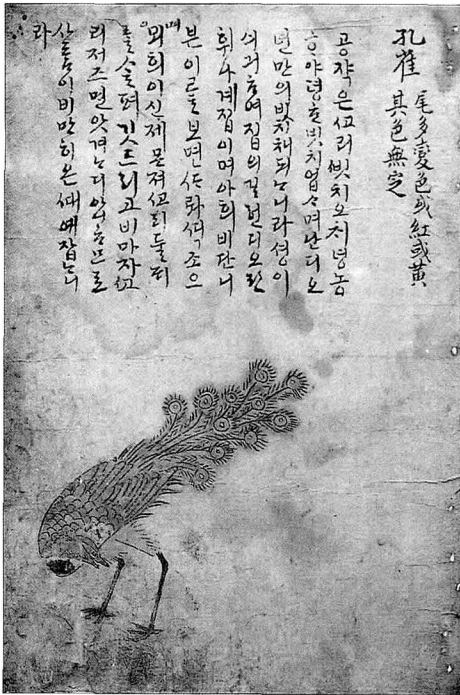 孔雀 尾多變色或紅或黃
其色無定
공쟉은 ᄭᅩ리 빗치 오치 녕농
ᄒᆞ야 뎡ᄒᆞᆫ 빗치 업ᄉᆞ며 난 디 오
년만의 빗치 채 되ᄂᆞ니라 셩이
싀긔ᄒᆞ여 집의 길넌 디 오란
휘나 계집이며 아희 비단 니
븐 이ᄅᆞᆯ 보면 ᄯᆞ라 조으
며 뫼희 이신 제 몬져 ᄭᅩ리 둘 ᄃᆡ
ᄅᆞᆯ ᄉᆞᆯ펴 깃드리고 비 마자 ᄭᅩ
리 저즈면 앗겨 므로
사ᄅᆞᆷ이 비 만히 온 ᄣᅢ예 잡ᄂᆞ니
라